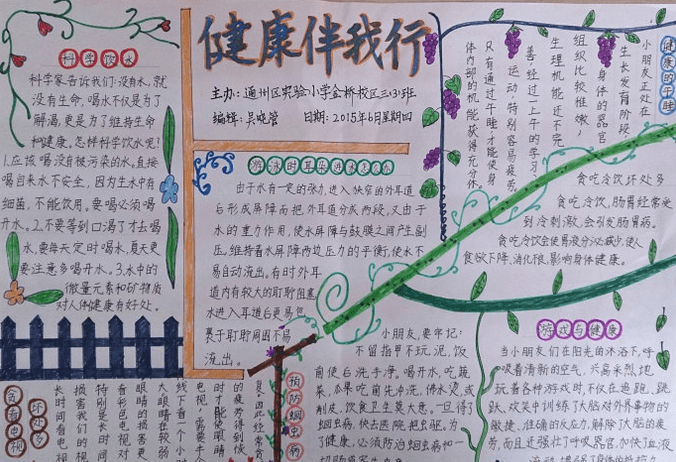 健康伴我行
主办：通州区实验小学金桥校区三·3·班
编辑：吴晓管 日期：2015年6月星期四
科学饮水
科学家告诉我们：没有水，就
没有生命。喝水不仅是为了
解渴，更是为了维持生命
和健康。怎样科学饮水呢？
1.应该喝没有被污染的水。直接
喝自来水不安全，因为生水中有
细菌，不能饮用。要喝必须喝
开水。2.不要等到口渴了才去喝
水，要每天定时喝水，夏天更
要注意多喝开水。3.水中的
微量元素和矿物质
对人体健康有好处。
由于水有一定的张力，进入狭窄的外耳道
后形成屏障而把外耳道分成两段，又由于
水的重力作用，使水屏障与鼓膜之间产生副
压，维持着水屏障两边压力的平衡，使水不
易自动流出。有时外耳
道内有较大的耵聍阻塞
水进入耳道后更易包
裹于耵聍周围不易
流出。
健康的午睡
小朋友正处在
生长发育阶段，
身体的器官
组织比较稚嫩，
生理机能还不完
善，经过一上午的学习、
运动，特别容易疲劳。
只有通过午睡才能使身
体内部的机能获得充分休
贪吃冷饮坏处多
贪吃冷饮，肠胃经常受
到冷刺激，会引发肠胃病。
贪吃冷饮会使胃液分泌减少，使人
食欲下降，消化很，影响身体健康。
游戏与健康
当小朋友们在阳光的沐浴下，呼
吸着清新的空气，兴高采烈地
玩着各种游戏时，不仅在追跑、跳
跃、欢笑中训练了大脑对外界事物的
敏捷、准确的反应力，解除了大脑的疲
劳，而且还强壮了呼吸器官，加快了血液
预防蛔虫病
小朋友，要牢记：
不留指甲不玩泥，饭
前便后洗手净。喝开水，吃蔬
菜，瓜果吃前先冲洗，沸水烫，或
削皮，饮食卫生莫大意。一旦得了
蛔虫病，快去医院把虫驱。为
了健康，必须防治蛔虫病和一
贪看电视
坏处多
长时间看电视
损害我们的视
特别是长时间
看彩色电视对
眼睛的损害更
大。眼睛在较弱
线下看一个小时
电视，需要半
时才能使眼睛
的疲劳得到恢
复，因此经常贪